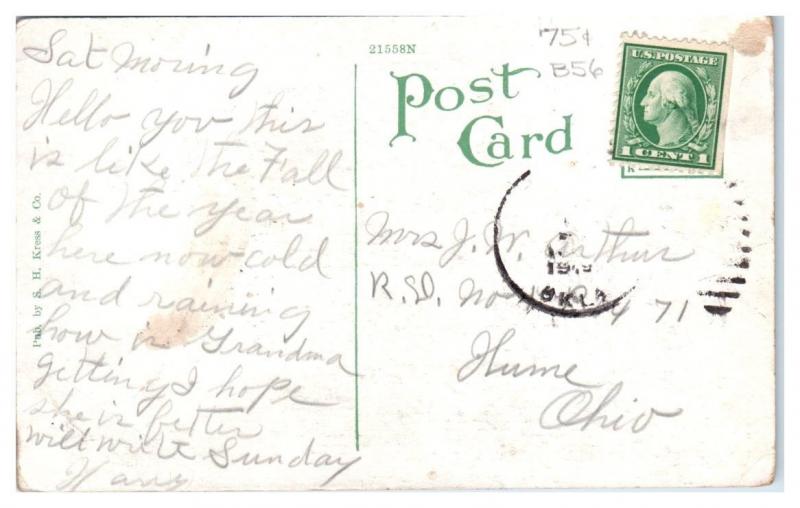 Sat Moring
Hello you this
is like the Fall
of the year
here now cold
and raining
how is Grandma
getting I hope
she is better
will write Sunday
Pub. by S. H. Kress & Co.
21558N
75¢
B56
Post
Card
U.S. POSTAGE
1 CENT 1
OKLA
Mrs J. W. Arthur
R.D. No 71
Hume
Ohio